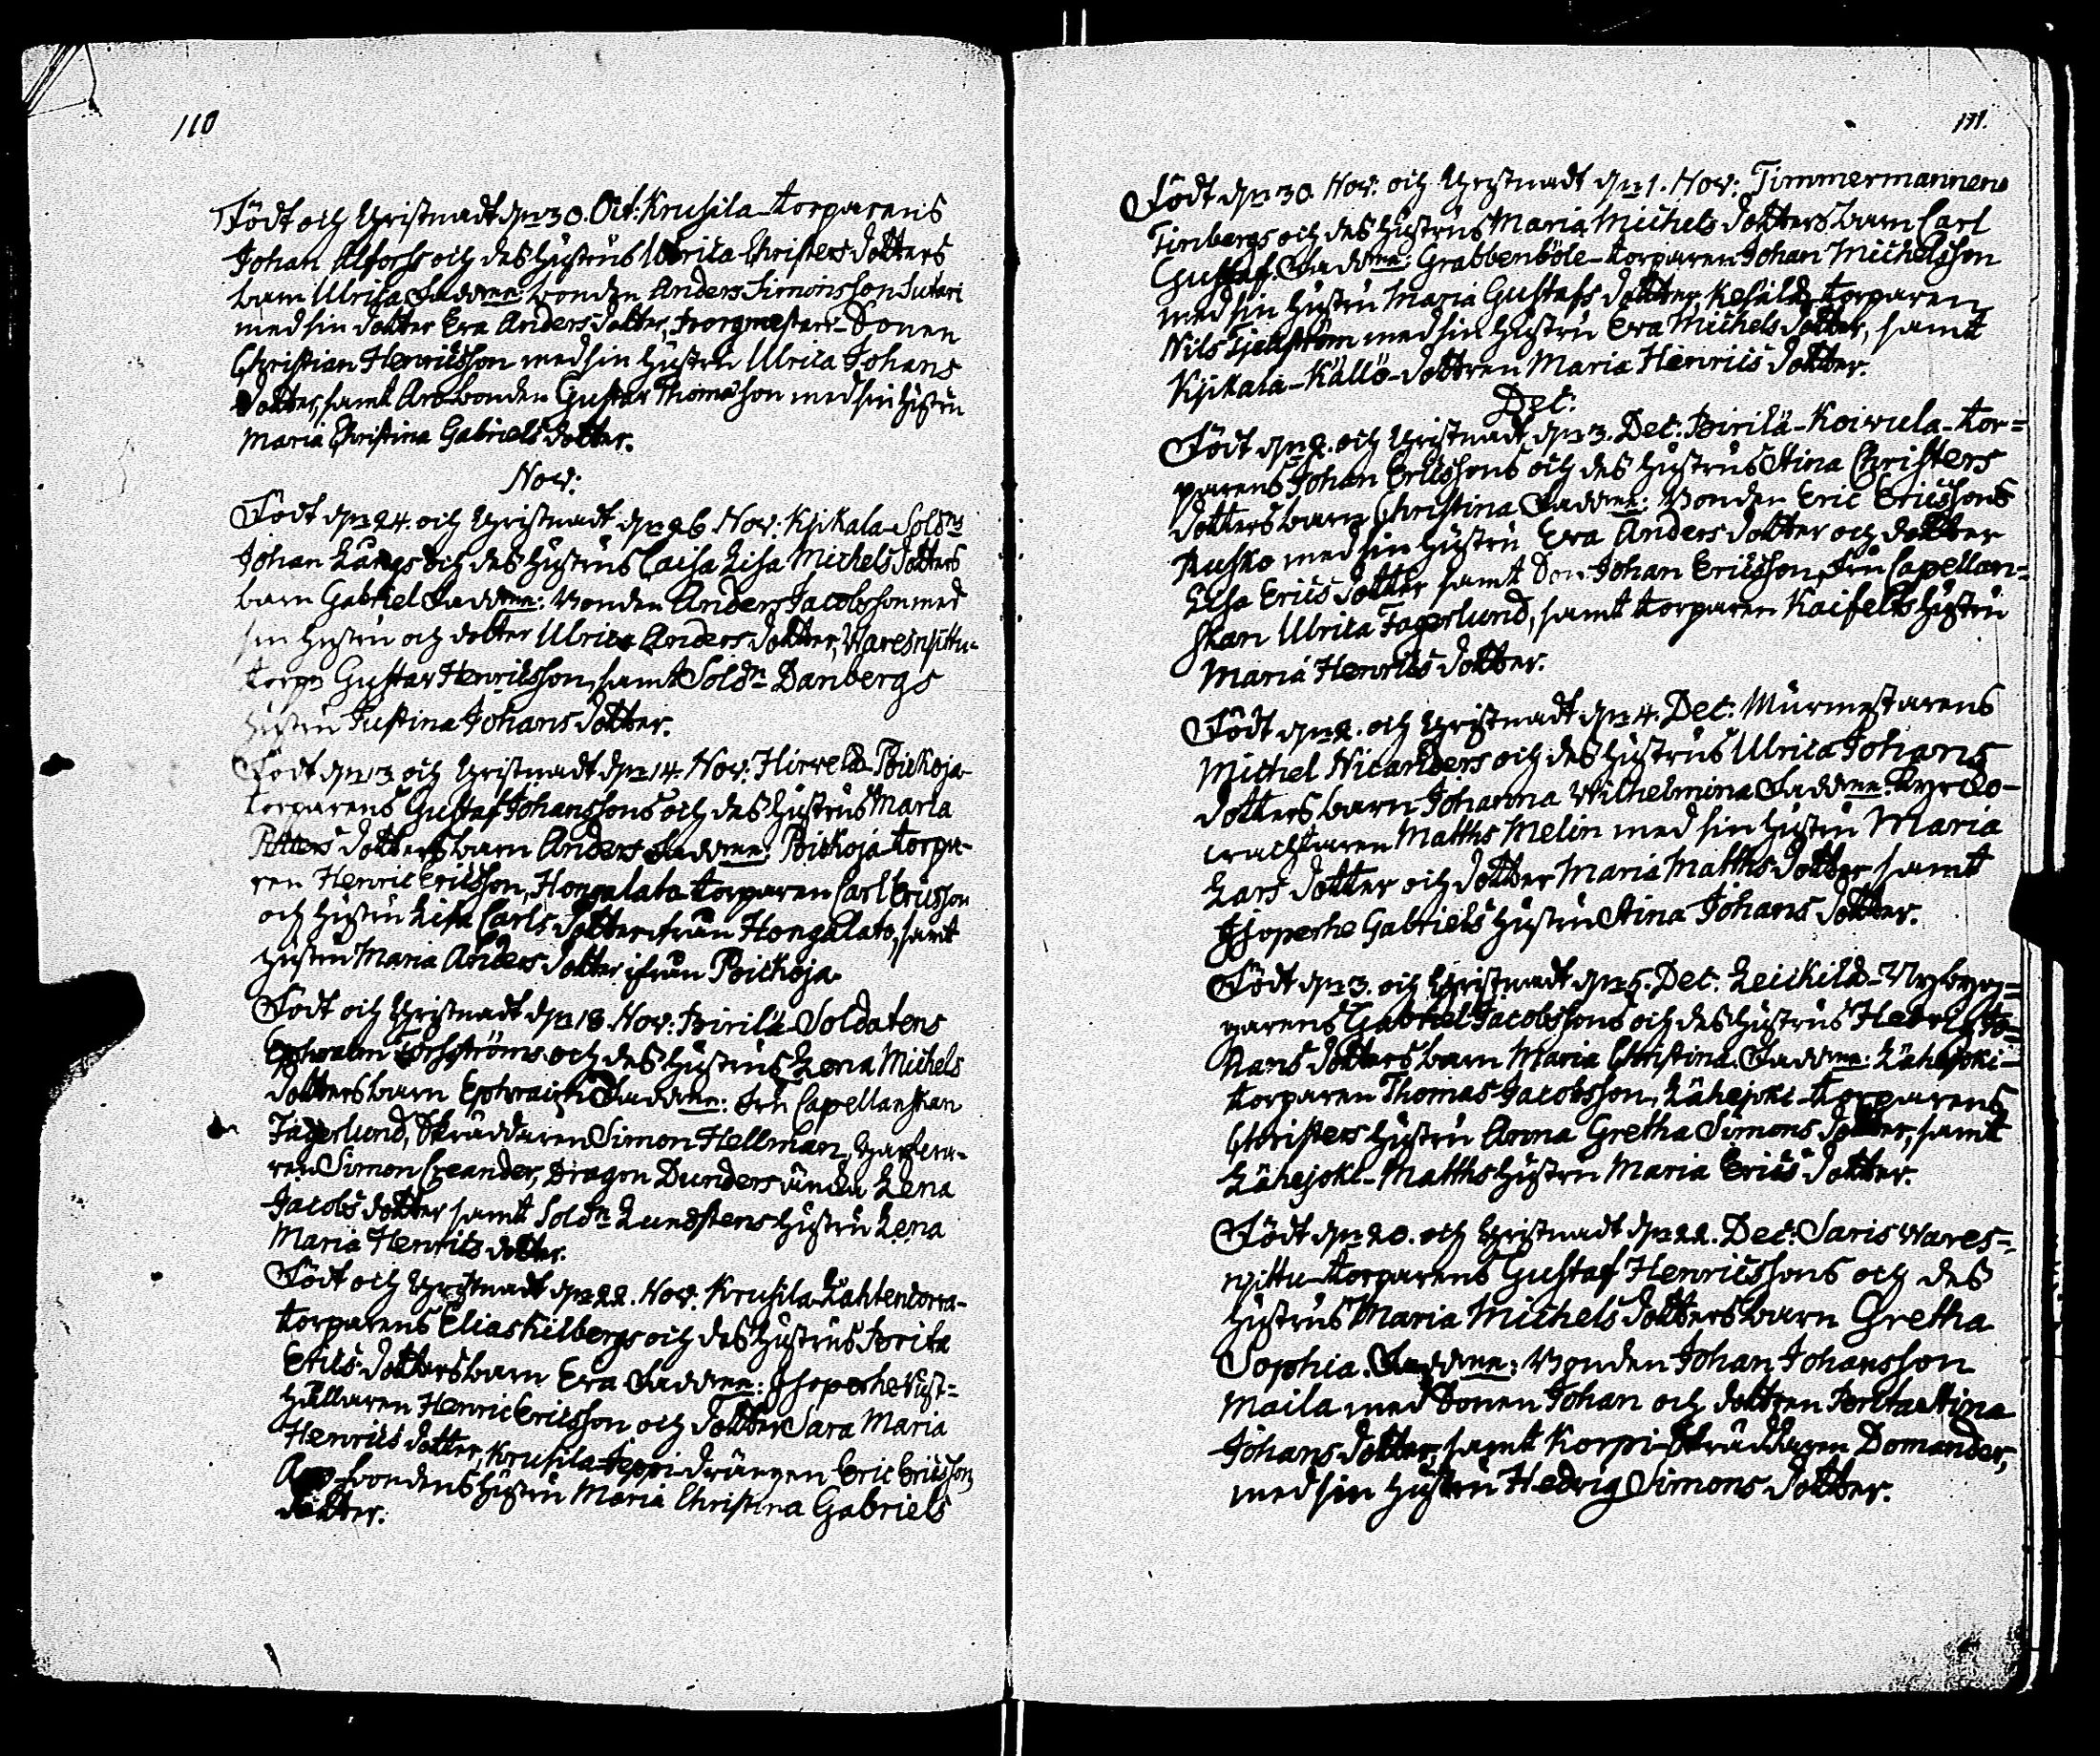 110
Född och Christnadt d. 30. Oct: Krusila-torparens
Johan Alfors och des hustrus Ulrica Christers dotters
barn Ulrica Faddrar: bonden Anders Simonsson Sutari
med sin dotter Eva Anders dotter, borgmestars-Sonen
Christian Henricsson med sin hustru Ulrica Johans
dotter, samt Arobonden Gustav Thomasson med sin hustru
Maria Christina Gabriels dotter.
Nov:
Född d. 24. och Christnadt d. 26. Nov: Kjikala-Sold:n
Johan Långs och des hustrus Caisa Lisa Michels dotters
barn Gabriel Faddrar: Bonden Anders Jacobsson med
sin hustru och dotter Ulrica Anders dotter, Waresnjittu-
torp: Gustav Henricsson, samt Sold:n Danbergs
hustru Justina Johans dotter.
Född d. 13 och Christnadt d. 14. Nov: Hirvelä-Poickoja-
torparens Gustaf Johanssons och des hustrus Maria
Petters dotters barn Anders Faddrar: Poickoja-torpa-
ren Henric Ericsson, Hongalato torparen Carl Ericsson
och hustru Lisa Carls dotter ifrån Hongalato, samt
hustru Maria Anders dotter ifrån Poickoja.
Född och Christnadt d. 18. Nov: Pirilä-Soldatens
Ephraim Forsströms och des hustrus Lena Michels
dotters barn Ephraim Faddrar: Fru Capellanskan
Fagerlund, Skräddaren Simon Hellman,
ren Simon Creander, Dragon Dunders änka Lena
Jacobs dotter samt Sold:n Lundstens hustru Lena
Maria Henrics dotter.
Född och Christnadt d. 22. Nov. Krusila-Lahtencorva-
torparens Elias Kilbergs och des hustrus Brita
Erics dotters barn Eva Faddrar: Isoperhe Rust-
hållaren Henric Ericsson och dotter Sara Maria
Henrics dotter, Krusila-Seppi-drängen Eric Ericsson,
bondens hustru Maria Christina Gabriels
dotter.
111.
Född d. 30. Nov. och Christnadt d. 1. Nov: Timmermannens
Tinbergs och des hustrus Maria Michels dotters barn Carl
Gustaf Faddrar: Grabbenböle-torparen Johan Michelsson
med sin hustru Maria Gustafs dotter, Kesälä-torparen
Nils Sjelström med sin hustru Eva Michels dotter, samt
Kjikala-Källö-dottren Maria Henrics dotter.
Dec:
Född d. 2. och Christnadt d. 3. Dec: Pirilä-Koivula-tor=
parens Johan Ericssons och des hustrus Stina Christers
dotters barn Christina Faddrar: Bonden Eric Ericssons
Rusko med sin hustru Eva Anders dotter och dotter
Lisa Erics dotter samt Son Johan Ericsson, Fru Capellan=
skan Ulrica Fagerlund, samt torparen Kaifelts hustru
Maria Henrics dotter.
Född d. 2. och Christnadt d. 4. Dec: Murmestarens
Michel Nicanders och des hustrus Ulrica Johans
dotters barn Johanna Wilhelmina Faddrar: Kyrco-
wachtaren Matths Melin med sin hustru Maria
Lars dotter och dotter Maria Matths dotter samt
Isoperhe Gabriels hustru Stina Johans dotter.
Född d. 3. och Christnadt d. 5. Dec. Leickilä-Nybyg=
garens Gabriel Jacobssons och des hustrus Hedvig Jo=
hans dotters barn Maria Christina. Faddrar: Lähejoki-
torparen Thomas Jacobsson, Lähejoki-torparens
Christers hustru Anna Gretha Simons dotter, samt
Lähejoki-Matths hustru Maria Erics dotter.
Född d. 20. och Christnadt d. 22. Dec: Saris Wares=
njittu-torparens Gustaf Henricssons och des
hustrus Maria Michels dotters barn Gretha
Sophia. Faddrar: Bonden Johan Johansson
Maila med Sonen Johan och dottren Brita Stina
Johans dotter, samt Korpi-Skräddaren Domander,
med sin hustru Hedvig Simons dotter.